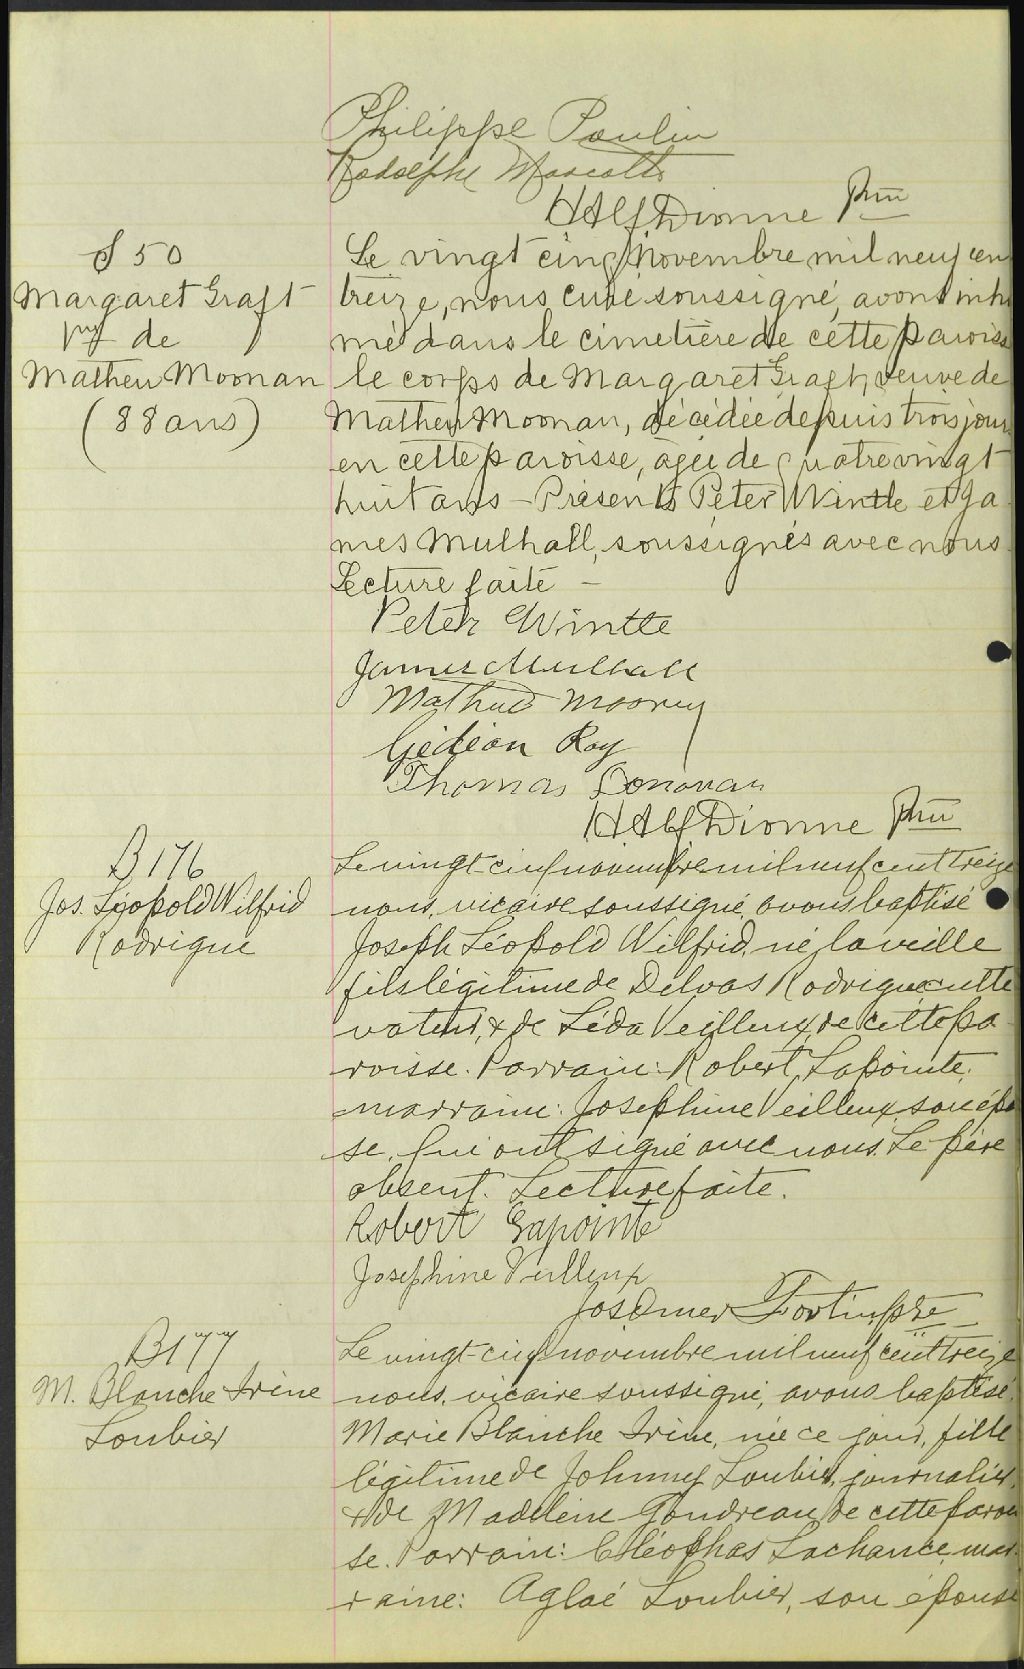 Philippe Poulin
Rodolphe Marcotte
HAlfDionne Ptre
S 50
Margaret Graft
Vve de
Matheu Moonan
(88 ans)
Le vingt cinq Novembre mil neuf cen
treize, nous curé soussigné, avons inhu
mé dans le cimetière de cette paroiss
le corps de Margaret Graft, veuve de
Matheu Moonan, décédée depuis trois jour
en cette paroisse, âgée de quatre vingt
huit ans - Présents Peter Wintle et Ja
mes Mulhall, soussignés avec nous.
Lecture faite -
Peter Wintle
James Mulhall
Mathew Mooney
Gédéon Roy
Thomas Donovan
HAlfDionne Ptre
B 176
Jos. Léopold Wilfrid
Rodrigue
Le vingt-cinq novembre mil neuf cent treize
nous, vicaire soussigné, avons baptisé
Joseph Léopold Wilfrid, né la veille
fils légitime de Delvas Rodrigue, culti
vateur, & de Léda Veilleux, de cette pa
roisse. Parrain: Robert Lapointe,
marraine: Josephine Veilleux, son épou
se, qui ont signé avec nous. Le père
absent. Lecture faite.
Robert Lapointe
Josephine Veilleux
Jos Omer Fortin, ptre
B177
M. Blanche Irène
Loubier
Le vingt-cinq novembre mil neuf cent treize
nous, vicaire soussigné, avons baptisé
Marie Blanche Irène, née ce jour, fille
légitime de Johnny Loubier, journalier,
& de Madeleine Goudreau, de cette parois
se. Parrain: Cléophas Lachance, mar
raine: Aglaé Loubier, son épouse